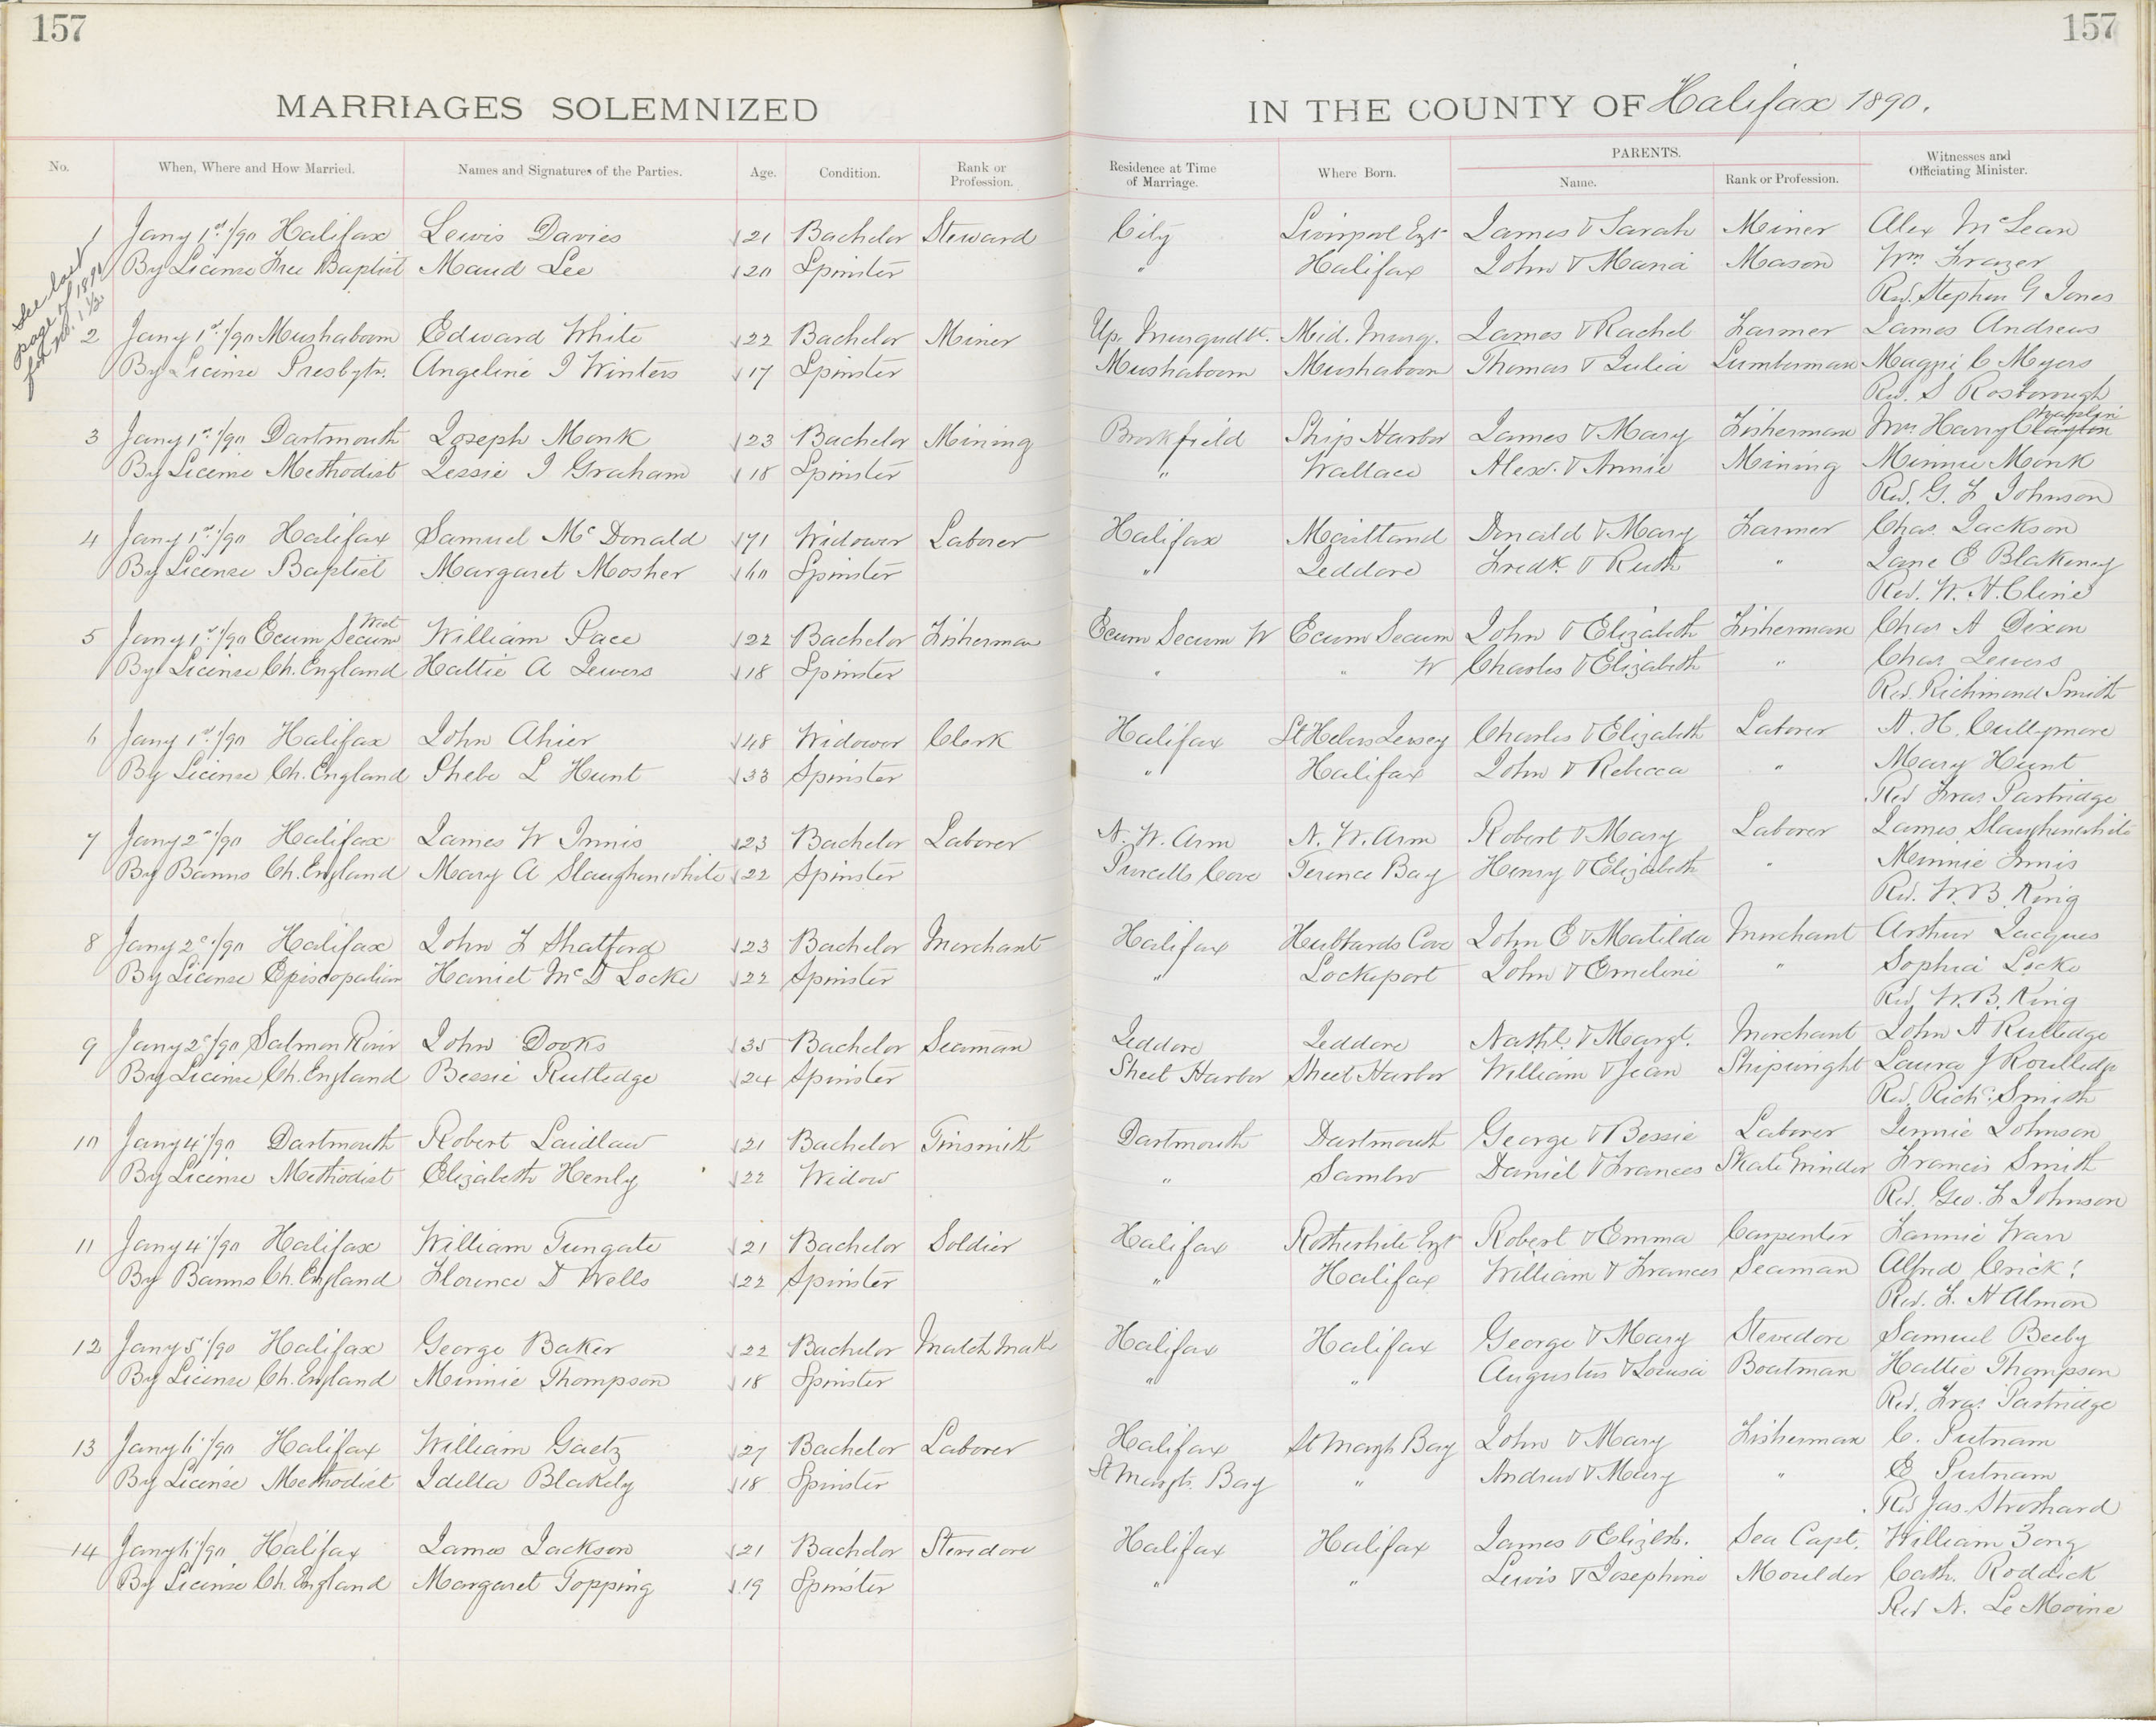 157
157
MARRIAGES SOLEMNIZED IN THE COUNTY OF Halifax 1890.
No. When, Where and How Married. Names and Signatures of the Parties. Age. Condition. Rank or Profession. Residence at Time of Marriage. Where Born. PARENTS. Name. Rank or Profession. Witnesses and Officiating Minister.
See last
page of 1890
for No. 1 1/2
1 Jany 1st/90 Halifax Lewis Davies 21 Bachelor Steward City Liverpool Engt James & Sarah Miner Alex McLean
By License Free Baptist Maud Lee 20 Spinster " Halifax John & Maria Mason Wm Frazer
Rev. Stephen G Jones
2 Jany 1st/90 Mushaboom Edward White 22 Bachelor Miner Up. Musquodt. Mid. Musq. James & Rachel Farmer James Andrews
By License Presbytn. Angeline I Winters 17 Spinster Mushaboom Mushaboom Thomas & Julia Lumberman Maggie C Myers
Rev. S Rosborough
3 Jany 1st/90 Dartmouth Joseph Monk 23 Bachelor Mining Brookfield Ship Harbor James & Mary Fisherman Mrs Harry Clayton
By License Methodist Jessie I Graham 18 Spinster " Wallace Alexr. & Annie Mining Minnie Monk
Rev. G. F Johnson
4 Jany 1st/90 Halifax Samuel McDonald 71 Widower Laborer Halifax Maitland Donald & Mary Farmer Chas. Jackson
By License Baptist Margaret Mosher 60 Spinster " Jeddore Fredk. & Ruth " Jane E Blakeney
Rev. W. H. Cline
5 Jany 1st/90 Ecum Secum West William Pace 22 Bachelor Fisherman Ecum Secum W Ecum Secum John & Elizabeth Fisherman Chas A Dixon
By License Ch. England Hattie A Jewers 18 Spinster " " W Charles & Elizabeth " Chas Jewers
Rev. Richmond Smith
6 Jany 1st/90 Halifax John Ahier 48 Widower Clerk Halifax St Heliers Jersey Charles & Elizabeth Laborer A. H. Cullymore
By License Ch. England Phebe L Hunt 33 Spinster " Halifax John & Rebecca " Mary Hunt
Rev Fras Partridge
7 Jany 2d/90 Halifax James W Innis 23 Bachelor Laborer N. W. Arm N. W. Arm Robert & Mary Laborer James Slaughenwhite
By Banns Ch. England Mary A Slaughenwhite 22 Spinster Purcells Cove Terence Bay Henry & Elizabeth " Minnie Innis
Rev. W. B. King
8 Jany 2d/90 Halifax John F Shatford 23 Bachelor Merchant Halifax Hubbards Cove John E & Matilda Merchant Arthur Jacques
By License Episcopalian Harriet McD Locke 22 Spinster " Lockeport John & Emeline " Sophia Locke
Rev. W. B. King
9 Jany 2d/90 Salmon River John Dooks 35 Bachelor Seaman Jeddore Jeddore Nathl. & Margt. Merchant John A Rutledge
By License Ch. England Bessie Rutledge 24 Spinster Sheet Harbor Sheet Harbor William & Jean Shipwright Laura J Routledge
Rev. Richd. Smith
10 Jany 4/90 Dartmouth Robert Laidlaw 21 Bachelor Tinsmith Dartmouth Dartmouth George & Bessie Laborer Jennie Johnson
By License Methodist Elizabeth Henly 22 Widow " Sambro Daniel & Frances Skate Grinder Francis Smith
Rev. Geo. F Johnson
11 Jany 4/90 Halifax William Tungate 21 Bachelor Soldier Halifax Rotherhite Engt Robert & Emma Carpenter Fannie Warr
By Banns Ch. England Florence D Wells 22 Spinster " Halifax William & Frances Seaman Alfred Crick!
Rev. F. H Almon
12 Jany 5/90 Halifax George Baker 22 Bachelor Match Maker Halifax Halifax George & Mary Stevedore Samuel Beeby
By License Ch. England Minnie Thompson 18 Spinster " " Augustus & Louisa Boatman Hattie Thompson
Rev. Fras Partridge
13 Jany 6/90 Halifax William Gaetz 27 Bachelor Laborer Halifax St Margts Bay John & Mary Fisherman C. Putnam
By License Methodist Idella Blakely 18 Spinster St Margts. Bay " Andrew & Mary " E Putnam
Rev Jas. Strothard
14 Jany 6/90 Halifax James Jackson 21 Bachelor Stevedore Halifax Halifax James & Elizbth. Sea Capt. William Zong
By License Ch. England Margaret Topping 19 Spinster " " Lewis & Josephine Moulder Cath. Roddick
Rev N. Le Moine